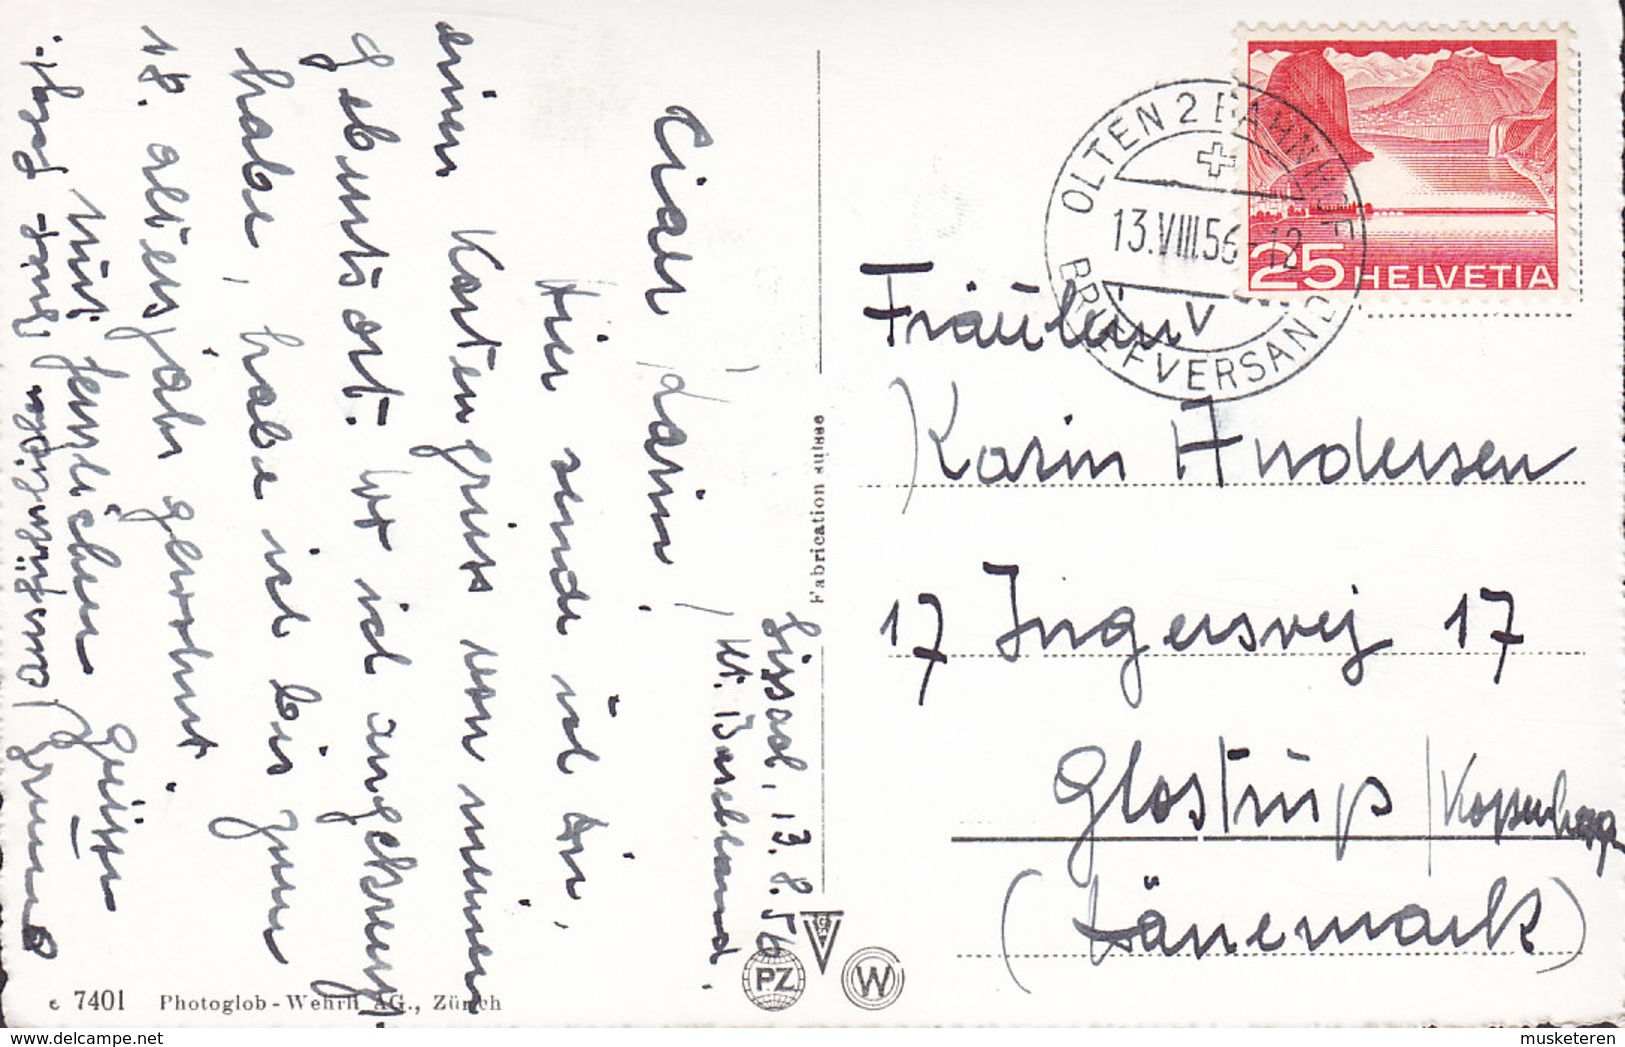 Sissach, 13.8.56
Kt. Baselland.
Liebe Karin!
Hier sende ich dir,
einen Kartengruss von meinem
Geburtsort. Wo ich angefangen
habe, habe ich bis zum
18. altersjahr gewohnt.
Mit herzlichen Grüssen
Bruno
ausführlicher Brief folgt.
Fabrication suisse
PZ
W
7401 Photoglob-Wehrli AG., Zürich
OLTEN 2 BAHNHOF
13.VIII.56-12
V
BRIEFVERSAND
25 HELVETIA
Fräulein
Karin Andersen
17 Ingersvej 17
Glostrup / Kopenhagen
(Dänemark)
musketeren
delcampe.net